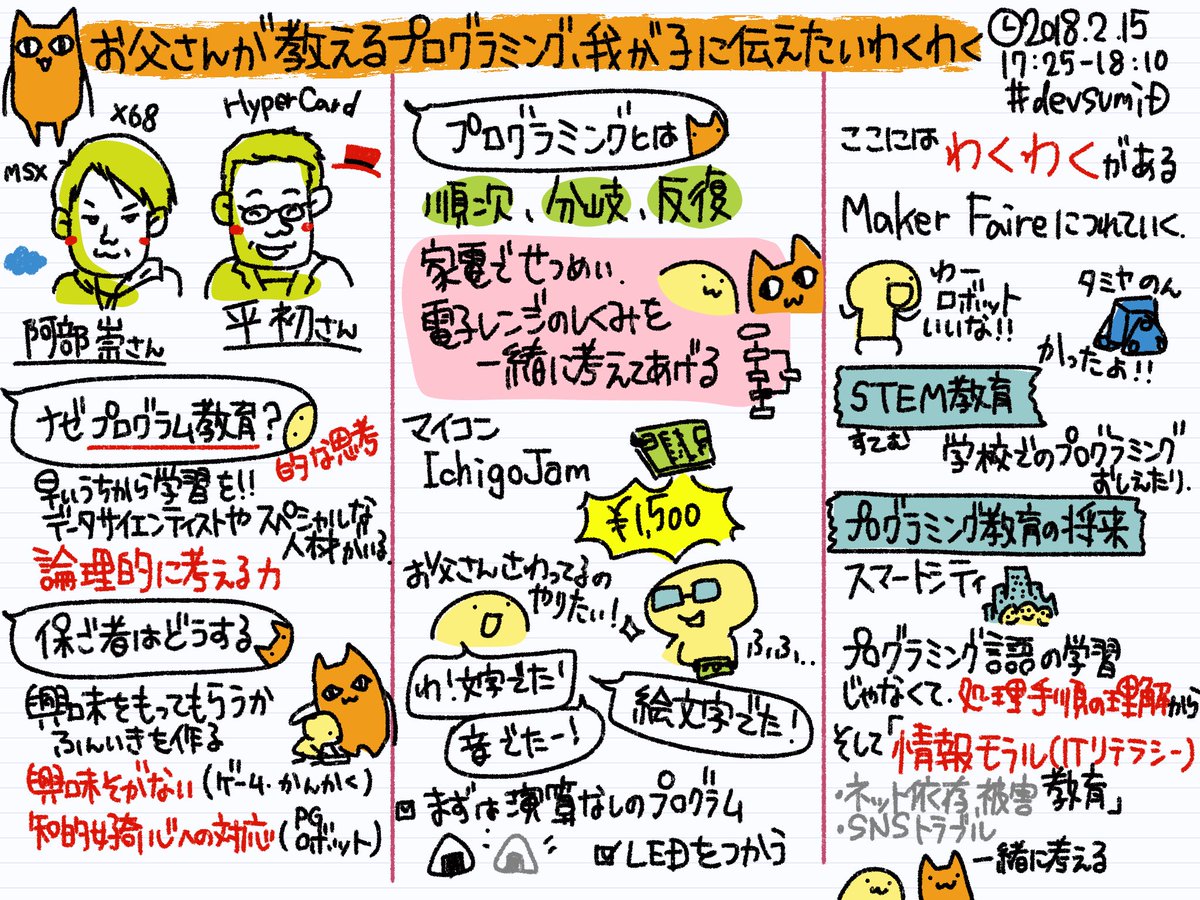 お父さんが教えるプログラミング、我が子に伝えたいわくわく
2018.2.15
17:25-18:10
#devsumiD
X68
HyperCard
MSX
阿部崇さん
平初さん
ナゼプログラム教育?
的な思考
早いうちから学習を!!
データサイエンティストやスペシャルな
人材がいる
論理的に考える力
保ご者はどうする
興味をもってもらうか
ふんいきを作る
興味そがない(ゲーム・かんかく)
知的好奇心への対応(PG
ロボット)
プログラミングとは
順次、分岐、反復
家電でせつめい.
電子レンジのしくみを
一緒に考えてあげる
マイコン
IchigoJam
¥1,500
お父さんさわってるの
やりたい!
ふふふ...
わ!文字でた!
音でたー!
絵文字でた!
まずは演算なしのプログラム
LEDをつかう
ここにはわくわくがある
Maker Faireにつれていく.
わー
ロボット
いいな!!
タミヤのん
かったよ!!
STEM教育
すてむ
学校でのプログラミング
おしえたり.
プログラミング教育の将来
スマートシティ
プログラミング言語の学習
じゃなくて.処理手順の理解から
そして「情報モラル(ITリテラシー)
教育」
・ネット依存、被害
・SNSトラブル
一緒に考える